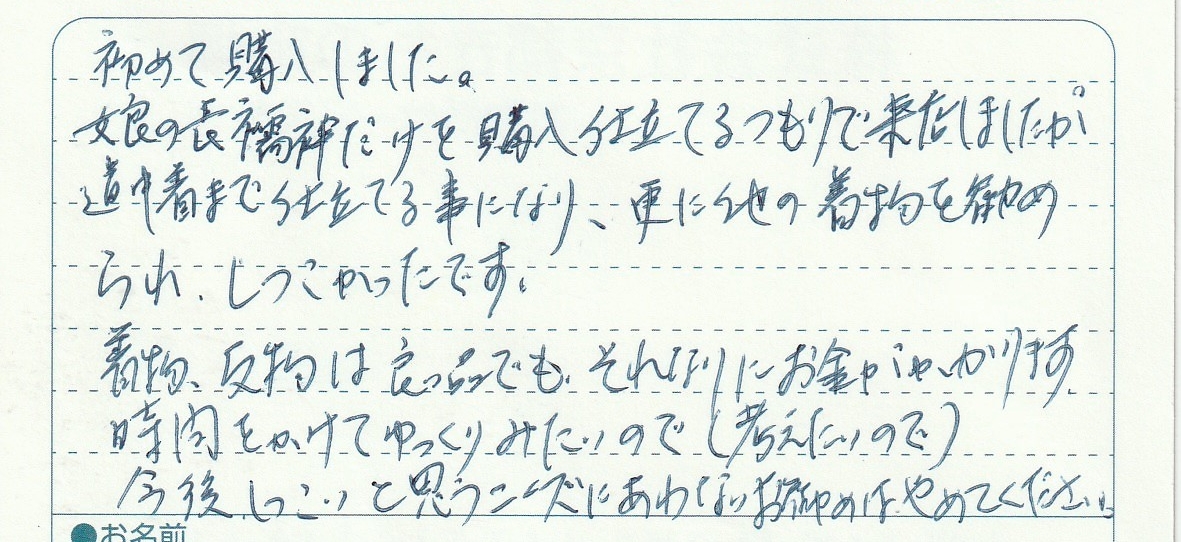 初めて購入しました。
娘の長襦袢だけを購入仕立てるつもりで来店しましたが
道中着まで仕立てる事になり、更に他の着物を勧め
られ、しつこかったです。
着物、反物は良い品でも、それなりにお金がかかります。
時間をかけてゆっくりみたいので(考えたいので)
今後、しつこいと思うニーズにあわないお勧めはやめてください。
●お名前